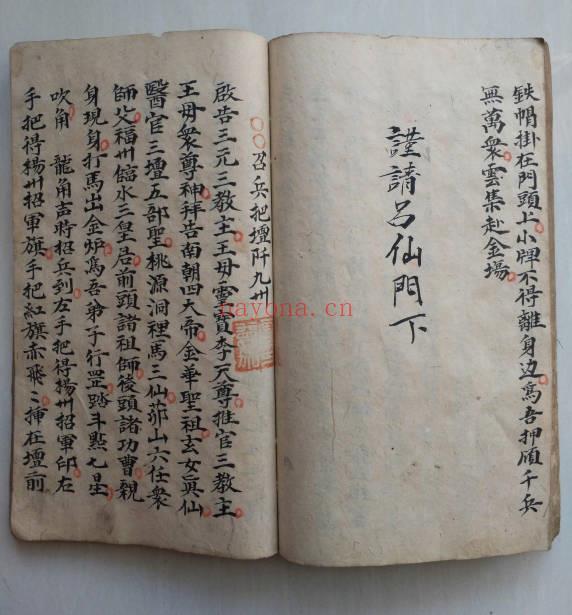 鉄帽掛在門頭上小牌不得離身边為吾押碩千兵
無萬衆雲集赴金場
謹請呂仙門下
召兵把壇阡九州
啟告三元三教主王母霊寶李天尊推官三教主
王母衆尊神拜告南朝四大帝金華聖祖玄女眞仙
醫官三壇五部聖桃源洞裡馬三仙茆山六任衆
師父福州臨水三皇君前頭諸祖師後頭諸功曹親
身現身打馬出金炉為吾弟子行罡踏斗點七星
吹角龍角声時招兵到左手把得揚州招軍印右
手把得揚州招軍旗手把紅旗赤飛〻挿在壇前
nayona.cn